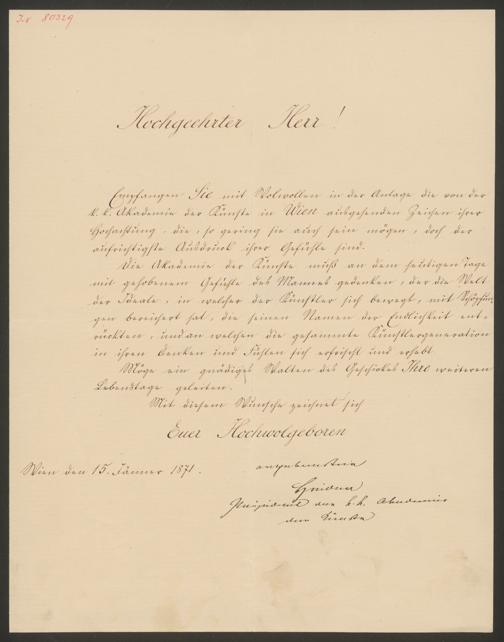 Hochgeehrter Herr!
Empfangen Sie mit Wolwollen in der Anlage die von der
k. k. Akademie der Künste in Wien ausgehenden Zeichen ihrer
Hochachtung, die, so gering sie auch sein mögen, doch der
aufrichtigste Ausdruck ihrer Gefühle sind.
Die Akademie der Künste muß an dem heutigen Tage
mit gehobenem Gefühle des Mannes gedenken, der die Welt
der Ideale, in welcher der Künstler sich bewegt, mit Schöpfun-
gen bereichert hat, die seinen Namen der Endlichkeit ent-
rückten, und an welchen die gesammte Künstlergeneration
in ihren Denken und Fühlen sich erfrischt und erhebt.
Möge ein gnädiges Walten des Geschickes Ihre weiteren
Lebenstage geleiten.
Mit diesem Wunsche zeichnet sich
Euer Hochwolgeboren
Wien den 15. Jänner 1871.
ergebenster
Präsident der k. k. Akademie
der Künste